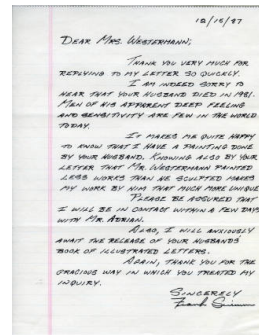 12/15/87
DEAR MRS. WESTERMANN,
THANK YOU VERY MUCH FOR
REPLYING TO MY LETTER SO QUICKLY.
I AM INDEED SORRY TO
HEAR THAT YOUR HUSBAND DIED IN 1981.
MEN OF HIS APPARENT DEEP FEELING
AND SENSITIVITY ARE FEW IN THE WORLD
TODAY.
IT MAKES ME QUITE HAPPY
TO KNOW THAT I HAVE A PAINTING DONE
BY YOUR HUSBAND. KNOWING ALSO BY YOUR
LETTER THAT MR. WESTERMANN PAINTED
LESS WORKS THAN HE SCULPTED MAKES
MY WORK BY HIM THAT MUCH MORE UNIQUE
PLEASE BE ASSURED THAT
I WILL BE IN CONTACT WITHIN A FEW DAYS
WITH MR. ADRIAN.
ALSO, I WILL ANXIOUSLY
AWAIT THE RELEASE OF YOUR HUSBANDS'
BOOK OF ILLUSTRATED LETTERS.
AGAIN, THANK YOU FOR THE
GRACIOUS WAY IN WHICH YOU TREATED MY
INQUIRY.
SINCERELY
Frank